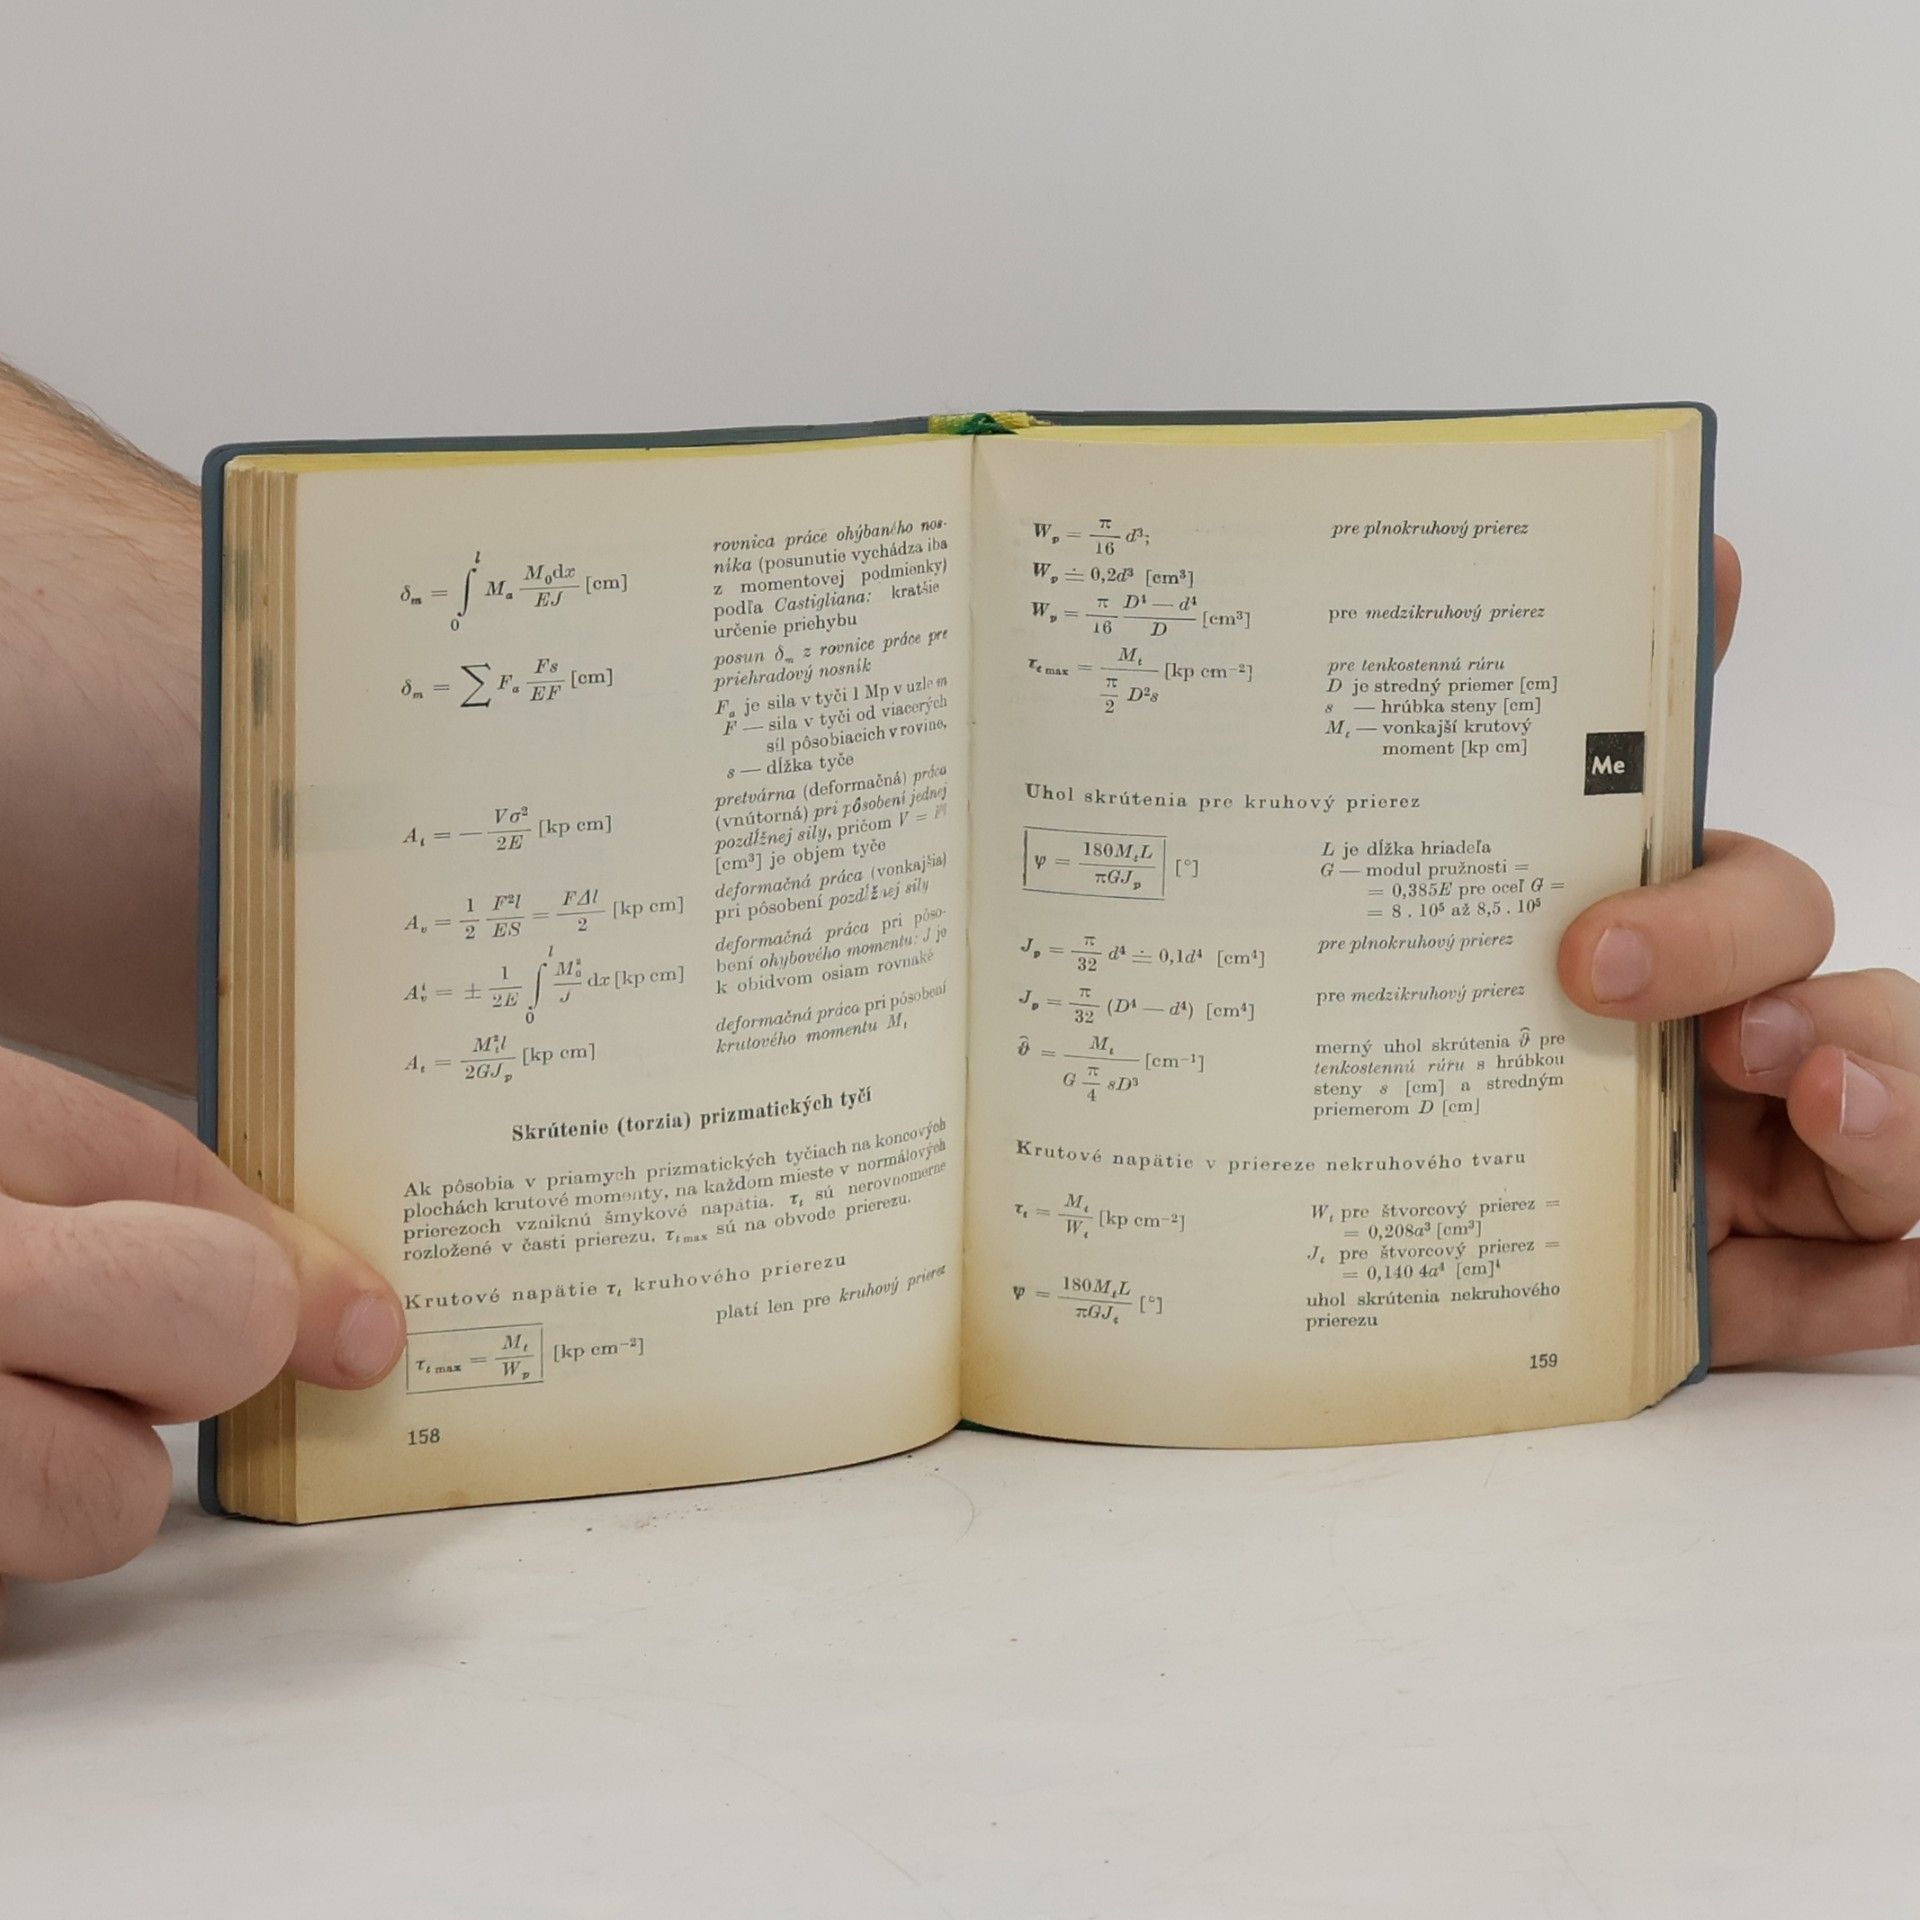 δₘ = ∫₀ˡ Mₐ M₀dx / EJ [cm]
rovnica práce ohýbaného nos-
níka (posunutie vychádza iba
z momentovej podmienky)
podľa Castigliana: kratšie
určenie priehybu
δₘ = ∑ Fₐ Fs / EF [cm]
posun δₘ z rovnice práce pre
priehradový nosník
Fₐ je sila v tyči 1 Mp v uzlom
F — sila v tyči od viacerých
síl pôsobiacich v rovine,
s — dĺžka tyče
Aᵢ = — Vσ² / 2E [kp cm]
pretvárna (deformačná) práca
(vnútorná) pri pôsobení jednej
pozdĺžnej sily, pričom V =
[cm³] je objem tyče
Aᵥ = 1/2 F²l / ES = FΔl / 2 [kp cm]
deformačná práca (vonkajšia)
pri pôsobení pozdĺžnej sily
= ± 1/2E ∫₀ˡ M₀² / J dx [kp cm]
deformačná práca pri pôso-
bení ohybového momentu: J je
k obidvom osiam rovnaké
Aₜ = Mₜ²l / 2GJₚ [kp cm]
deformačná práca pri pôsobení
krutového momentu Mₜ
Skrútenie (torzia) prizmatických tyčí
Ak pôsobia v priamych prizmatických tyčiach na koncových
plochách krutové momenty, na každom mieste v normálových
prierezoch vzniknú šmykové napätia. τₜ sú nerovnomerne
rozložené v časti prierezu. τₜ max sú na obvode prierezu.
Krutové napätie τₜ kruhového prierezu
platí len pre kruhový prierez
τₜ max = Mₜ / Wₚ [kp cm⁻²]
158
Wₚ = π/16 d³;
pre plnokruhový prierez
Wₚ ≐ 0,2d³ [cm³]
Wₚ = π/16 D⁴ — d⁴ / D [cm³]
pre medzikruhový prierez
τₜ max = Mₜ / π/2 D²s [kp cm⁻²]
pre tenkostennú rúru
D je stredný priemer [cm]
s — hrúbka steny [cm]
Mₜ — vonkajší krutový
moment [kp cm]
Me
Uhol skrútenia pre kruhový prierez
φ = 180MₜL / πGJₚ [°]
L je dĺžka hriadeľa
G — modul pružnosti =
= 0,385E pre oceľ G =
= 8 . 10⁵ až 8,5 . 10⁵
Jₚ = π/32 d⁴ ≐ 0,1d⁴ [cm⁴]
pre plnokruhový prierez
Jₚ = π/32 (D⁴ — d⁴) [cm⁴]
pre medzikruhový prierez
ϑ̂ = Mₜ / G π/4 sD³ [cm⁻¹]
merný uhol skrútenia ϑ̂ pre
tenkostennú rúru s hrúbkou
steny s [cm] a stredným
priemerom D [cm]
Krutové napätie v priereze nekruhového tvaru
τₜ = Mₜ / Wₜ [kp cm⁻²]
Wₜ pre štvorcový prierez =
= 0,208a³ [cm³]
Jₜ pre štvorcový prierez =
= 0,140 4a⁴ [cm]⁴
φ = 180MₜL / πGJₜ [°]
uhol skrútenia nekruhového
prierezu
159